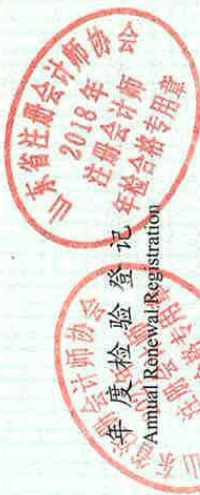 山东省注册会计师协会
2018年
注册会计师
年检合格专用章
年度检验登记
Annual Renewal Registration
山东省注册会计师协会
注册会计师